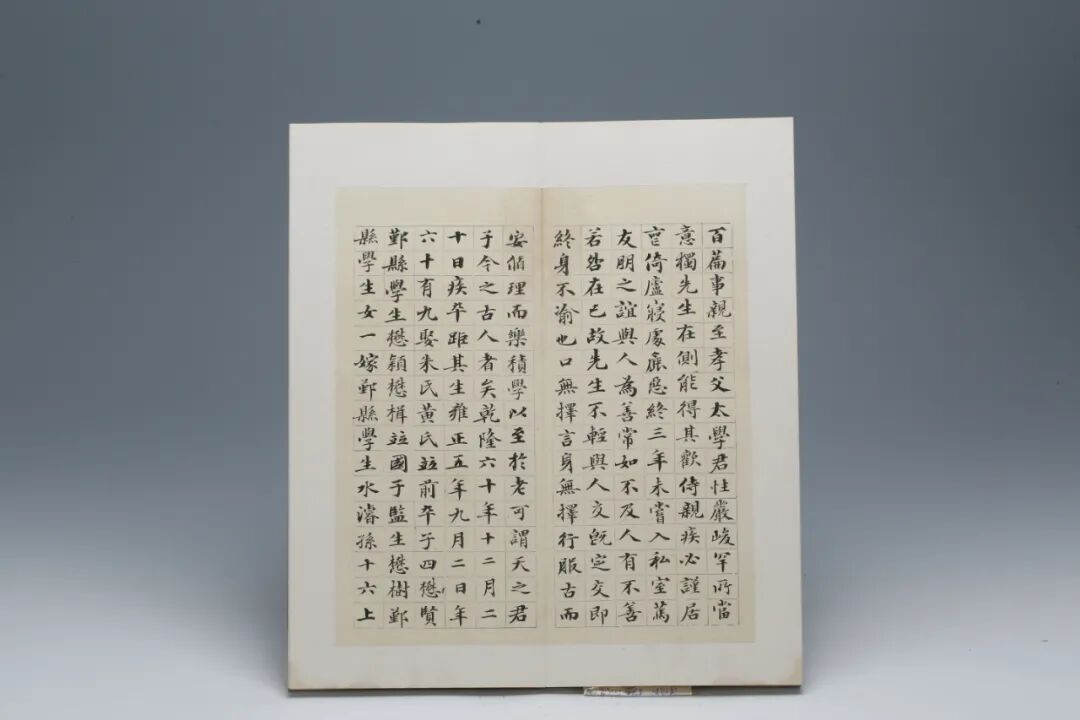 百篇事親至孝父太學君性嚴峻罕所當
意獨先生在側能得其歡侍親疾必謹居
喪倚廬寢處麤惡終三年未嘗入私室篤
友朋之誼與人為善常如不及人有不善
若咎在已故先生不輕與人交既定交即
終身不渝也口無擇言身無擇行服古而
安循理而樂積學以至於老可謂天之君
子今之古人者矣乾隆六十年十二月二
十日疾卒距其生雍正五年九月二日年
六十有九娶朱氏黃氏竝前卒子四懋賢
鄞縣學生懋穎懋楫竝國子監生懋樹鄞
縣學生女一嫁鄞縣學生水濬孫十六上